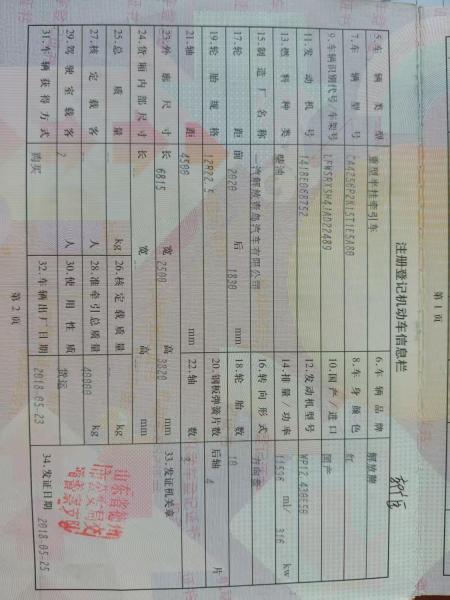 第1页
注册登记机动车信息栏
5.车辆类型 重型半挂牵引车 6.车辆品牌 解放牌
7.车辆型号 CA4256P2K15T1E5A80 8.车身颜色 红
9.车辆识别代号/车架号 LFWSRXSH4JAD22489 10.国产/进口 国产
11.发动机号 1418E068752 12.发动机型号 WP12.430E50
13.燃料种类 柴油 14.排量/功率 11596 ml/ 316 kw
15.制造厂名称 一汽解放青岛汽车有限公司 16.转向形式 方向盘
17.轮距 前 2020 后 1830 mm 18.轮胎数 10
19.轮胎规格 12R22.5 20.钢板弹簧片数 后轴 4 片
21.轴距 4500 mm 22.轴数
23.外廓尺寸 长 6815 宽 2500 高 3820 mm
24.货厢内部尺寸 长 宽 高 mm 33.发证机关章
25.总质量 kg 26.核定载质量 kg
27.核定载客 人 28.准牵引总质量 40000 kg
29.驾驶室载客 2 人 30.使用性质 货运
31.车辆获得方式 购买 32.车辆出厂日期 2018-05-23 34.发证日期 2018-05-25
第2页